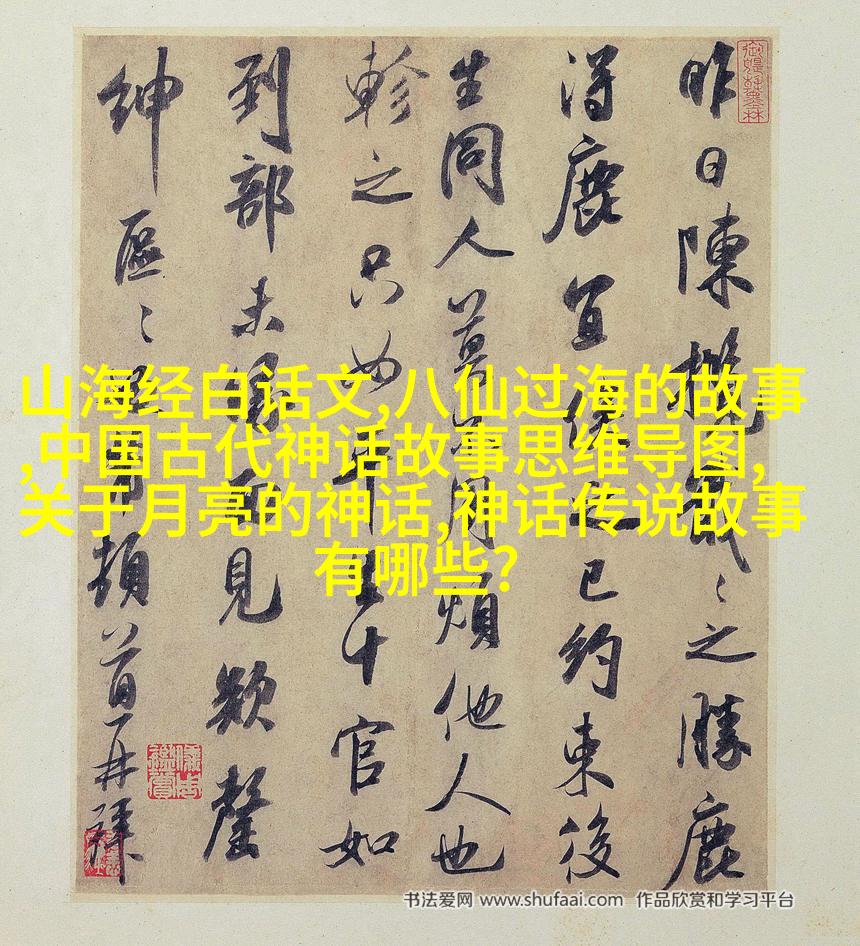 山海经白话文,八仙过海的故事
,中国古代神话故事思维导图,
关于月亮的神话,神话传说故事
有哪些?
昨日陳戢〻之勝鹿
得鹿宜之已約束後
生同人用煩他人也
軫之只如十官如
到部未見欵罄
紳區〻頓首再拜
书法爱网 www.shufaai.com 作品欣赏和学习平台